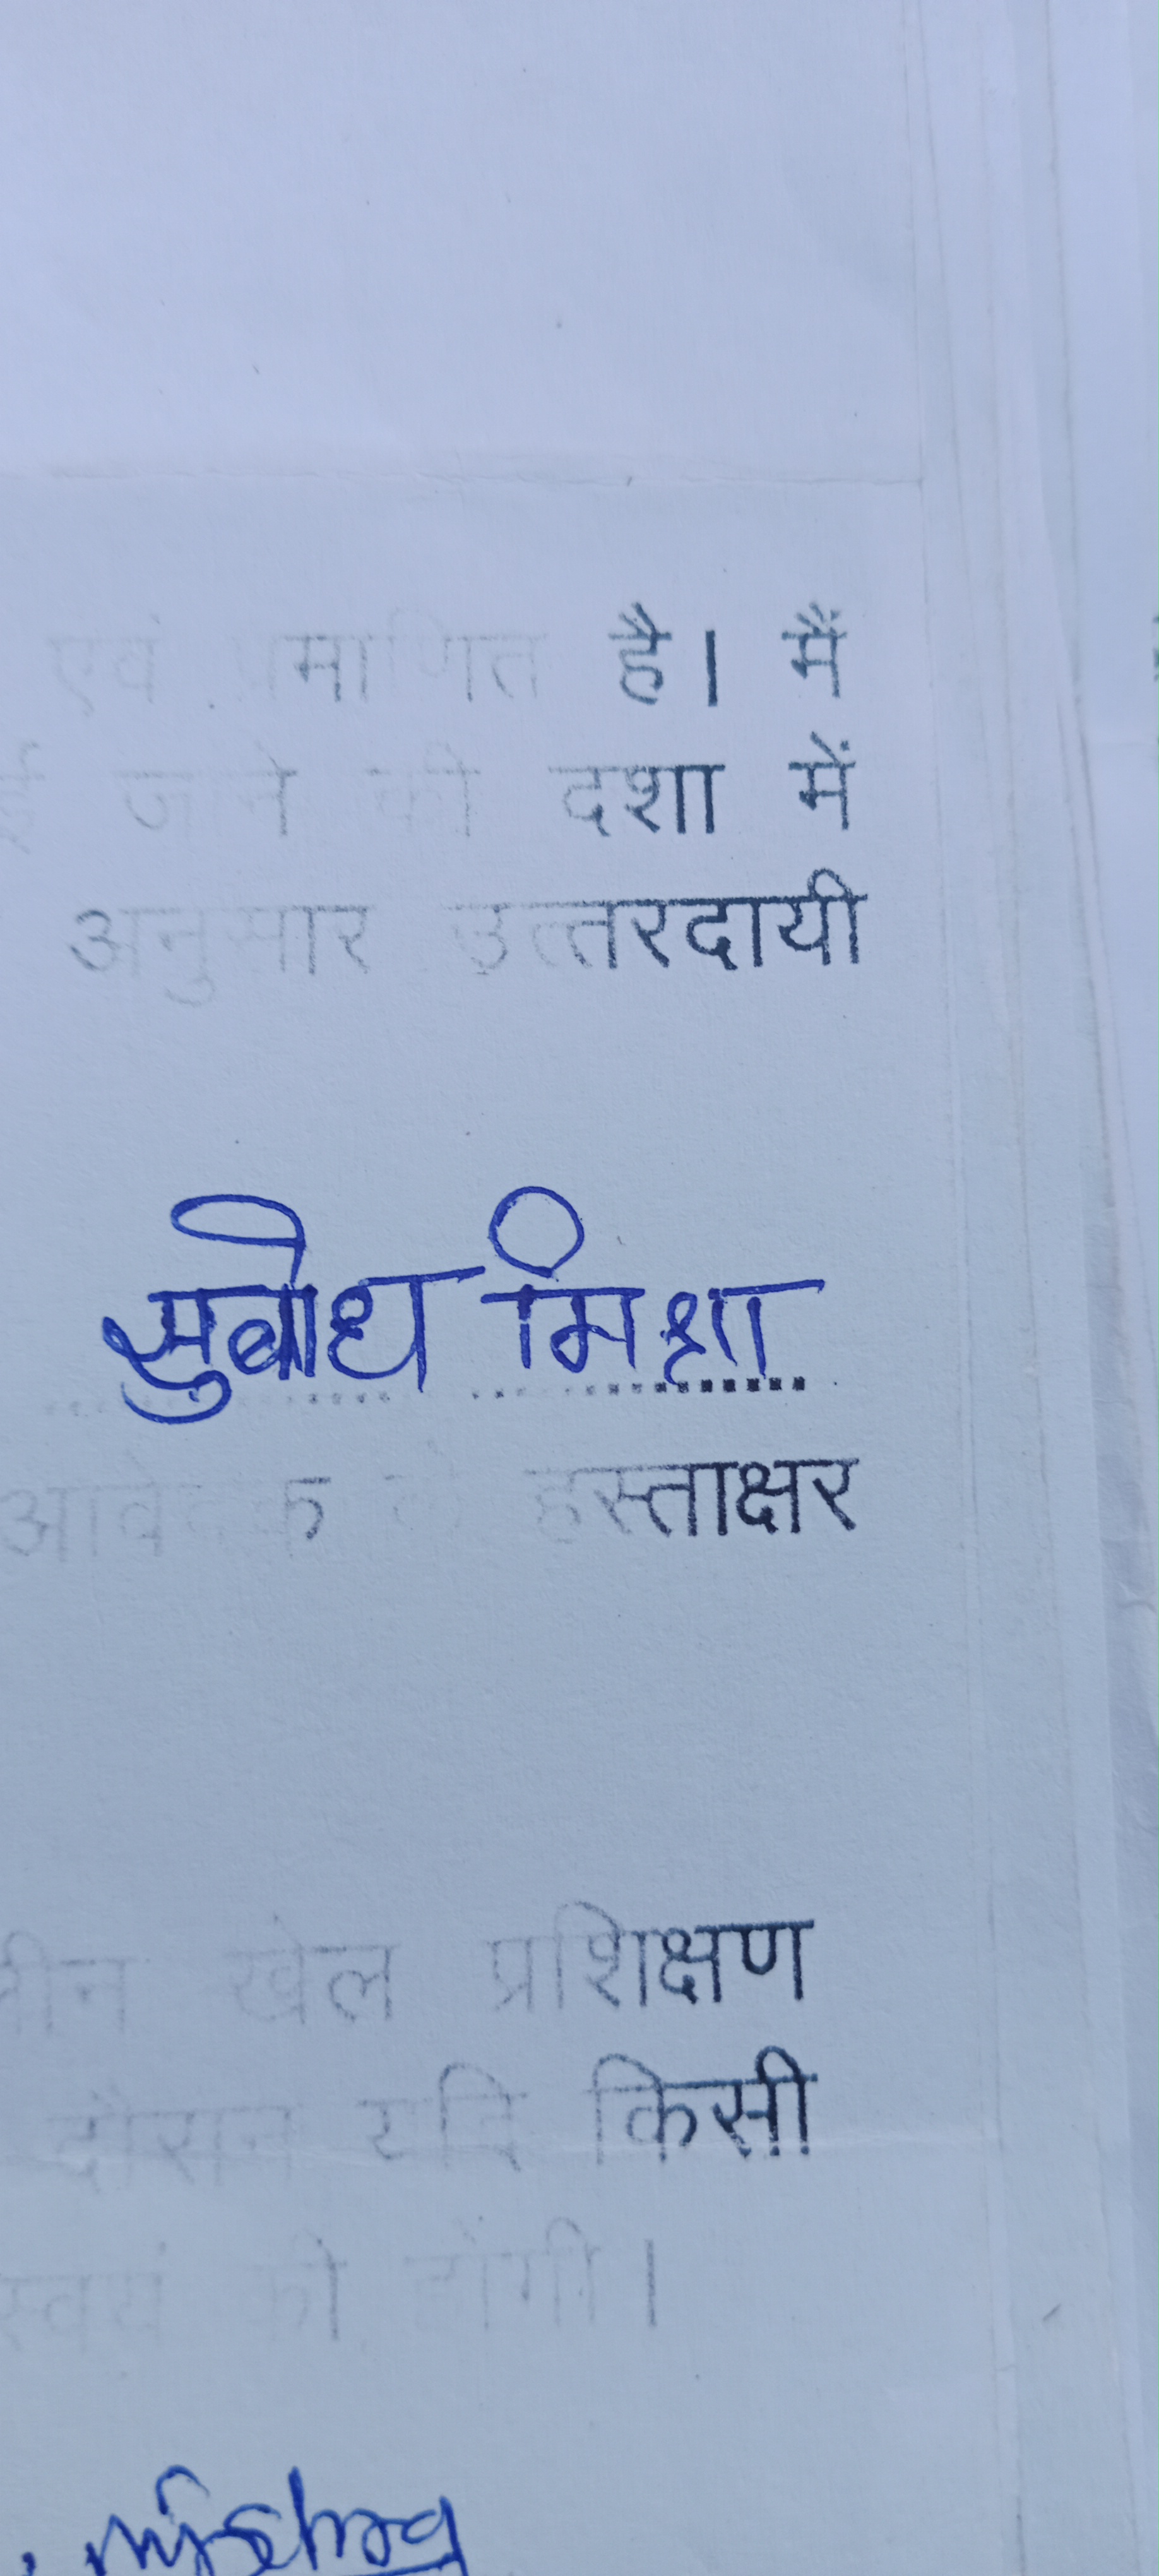 एवं प्रमाणित है। मैं
जाने की दशा में
अनुसार उत्तरदायी
सुबोध मिश्रा
आवेदक के हस्ताक्षर
खेल प्रशिक्षण
दौरान यदि किसी
स्वयं की होगी।
Mishra